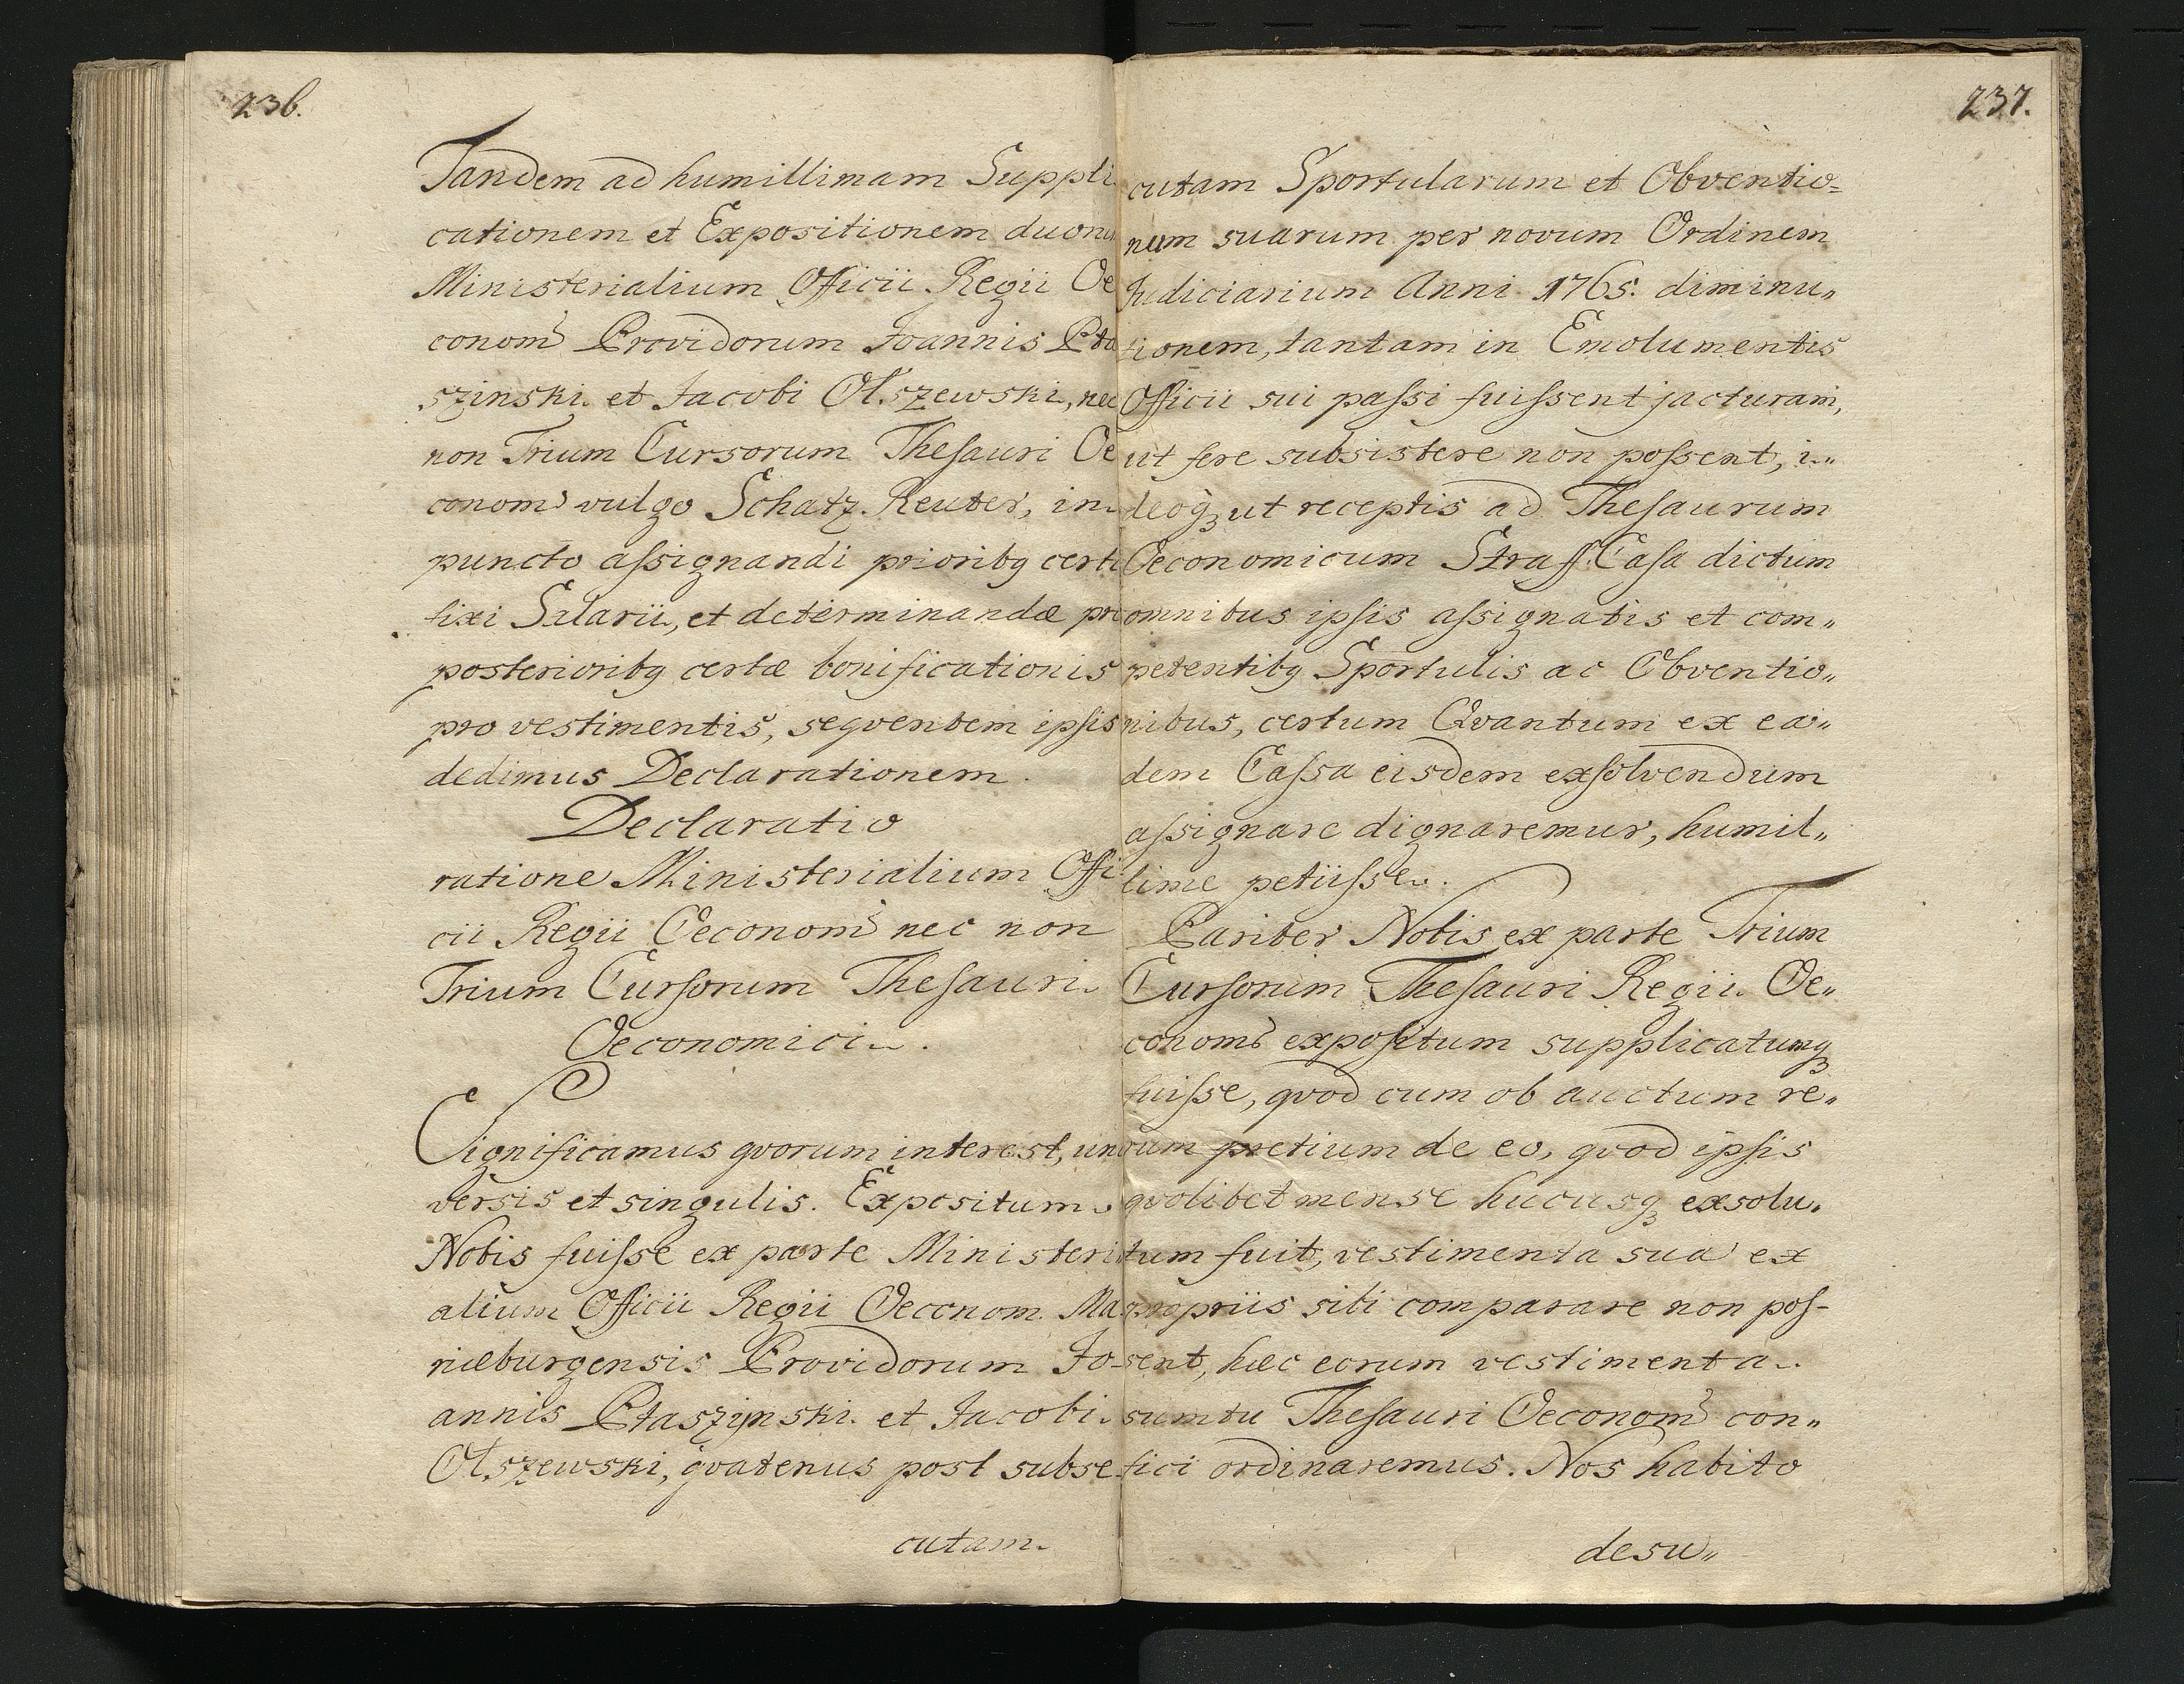 236.
Tandem ad humillimam Suppli
cationem et Expositionem duoru
Ministerialium Officii Regii Oe
conom Providorum Joannis Pta
szinski et Jacobi Olszewski, nec
non Trium Cursorum Thesauri Oe
conom vulgo Schatz Reuter, in
puncto assignandi prioribq certi
fixi Salarii, et determinandæ pro
posterioribq certæ bonificationis
pro vestimentis, seqventem ipsis
dedimus Declarationem.
Declaratio
ratione Ministerialium Offi
cii Regii Oeconom nec non
Trium Cursorum Thesauri
Oeconomici.
Significamus qvorum interest, uni
versis et singulis. Expositum
Nobis fuisse ex parte Ministeri
alium Officii Regii Oeconom. Ma
riæburgensis Providorum Jo-
annis Ptaszijnski et Jacobi
Olszewski, qvatenus post subse
cutam
237.
cutam Sportularum et Obventio=
num suarum per novum Ordinem
Judiciarium Anni 1765. diminu„
tionem, tantam in Emolumentis
Officii sui passi fuissent jacturam,
ut fere subsistere non possent, i„
deoqꝫ ut receptis ad Thesaurum
Oeconomicum Straff Casa dictum
omnibus ipsis assignatis et com„
petentibq Sportulis ac Obventio„
nibus, certum Qvantum ex ea„
dem Cassa eisdem exsolvendum
assignare dignaremur, humil„
lime petiisse.
Pariter Nobis ex parte Trium
Cursorum Thesauri Regii Oe„
conom expositum supplicatumqꝫ
fuisse, qvod cum ob auctum re„
rum pretium de eo, qvod ipsis
qvolibet mense hucusqꝫ exsolu„
tum fuit, vestimenta sua ex
propriis sibi comparare non pos-
sent, hæc eorum vestimenta
sumtu Thesauri Oeconom con„
fici ordinaremus. Nos habito
desu„